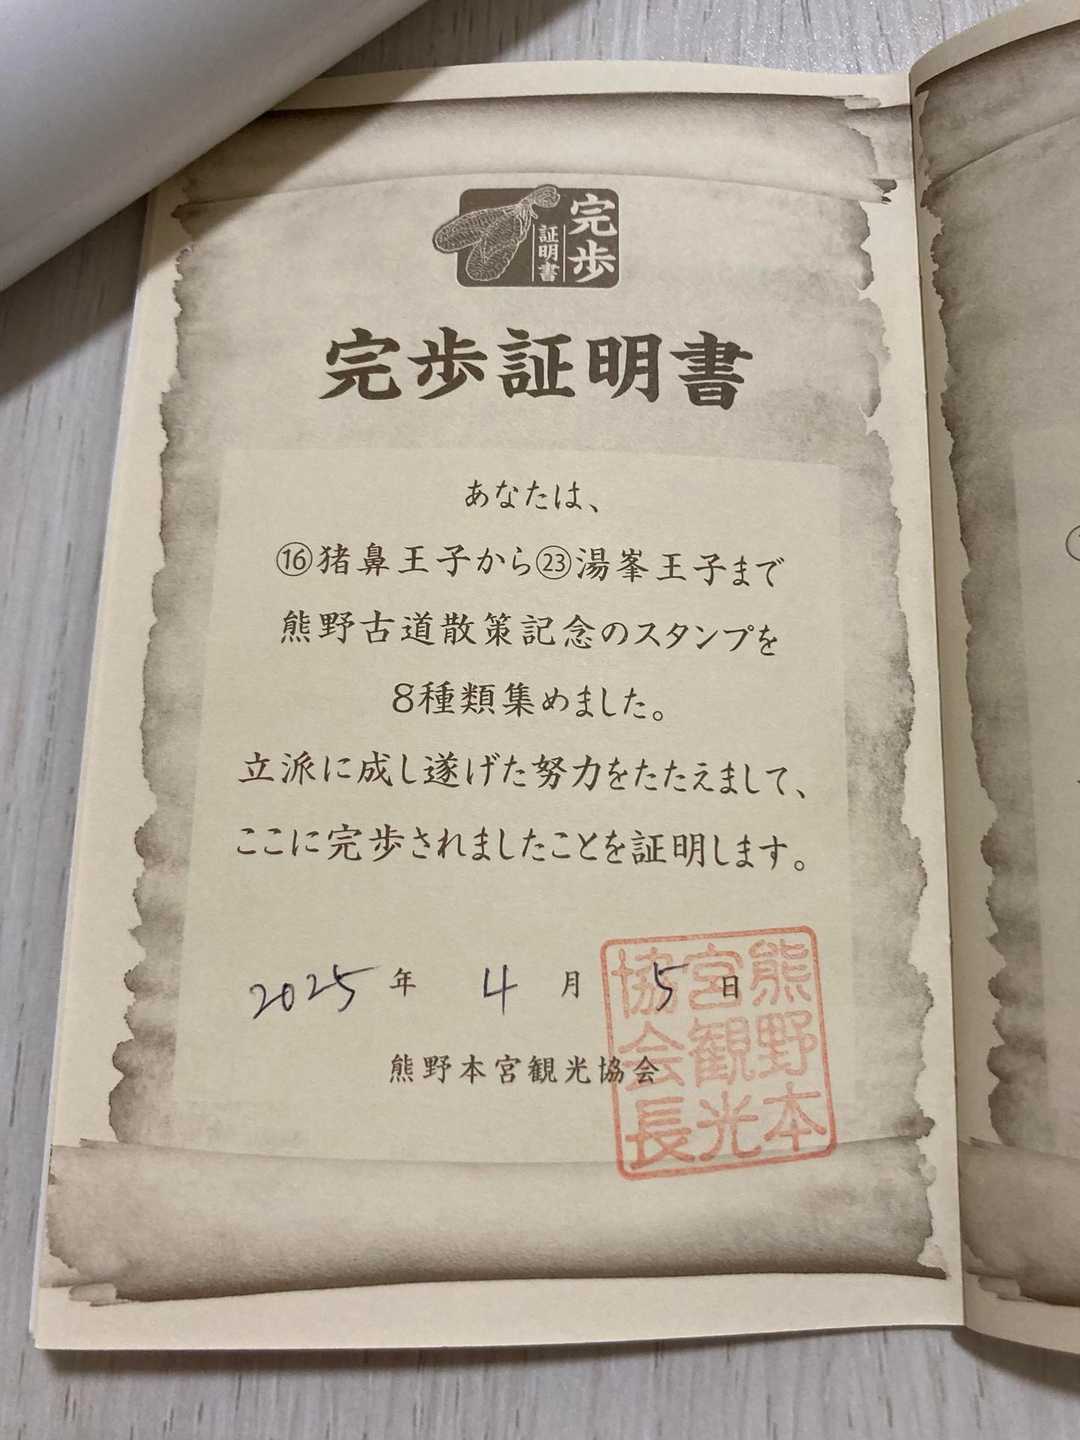 完歩
証明書
完歩証明書
あなたは、
⑯猪鼻王子から㉓湯峯王子まで
熊野古道散策記念のスタンプを
8種類集めました。
立派に成し遂げた努力をたたえまして、
ここに完歩されましたことを証明します。
2025年 4月 5日
熊野本宮観光協会
熊野本
宮観光
協会長